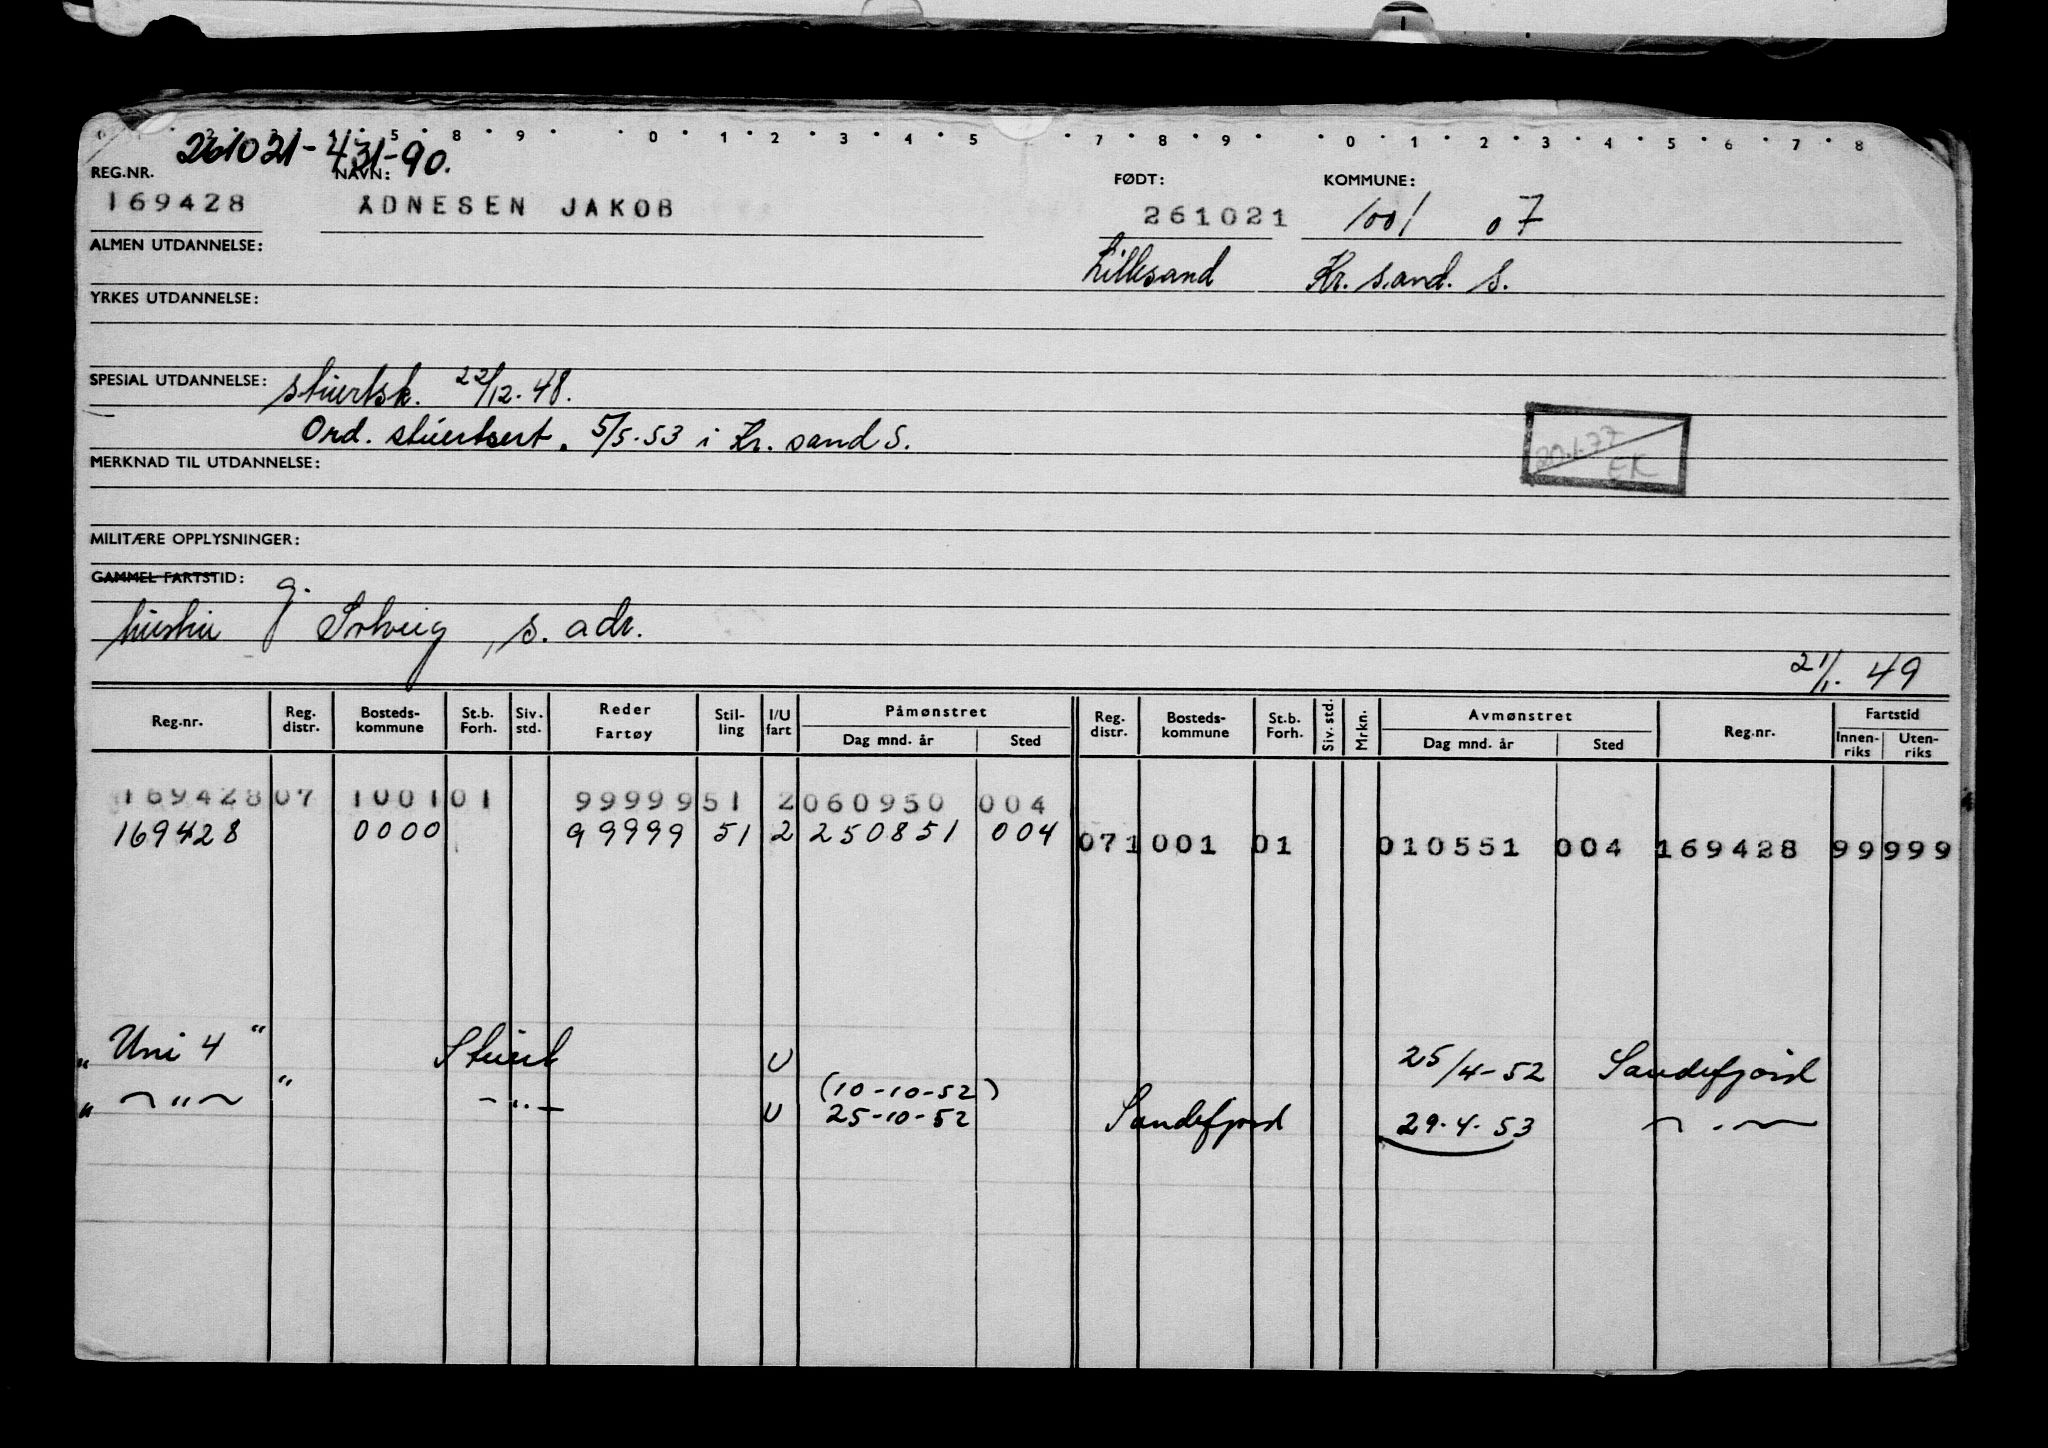 0 8 9 0 1 2 3 4 5 7 8 9 0 1 2 3 4 5 6 7 8
261021-431-90.
REG.NR. NAVN: FØDT: KOMMUNE:
169428 ADNESEN JAKOB 261021 1001 07
ALMEN UTDANNELSE: Lillesand Kr. sand. S.
YRKES UTDANNELSE:
SPESIAL UTDANNELSE: stuertsk. 22/12.48.
Ord. stuertsert. 5/5-53 i Kr. sand S.
20.1.77
EK
MERKNAD TIL UTDANNELSE:
MILITÆRE OPPLYSNINGER:
GAMMEL FARTSTID:
g.
hustru Solveig, s. adr.
21/1. 49
Reg.nr. Reg. distr. Bosteds-kommune St.b. Forh. Siv. std. Reder Fartøy Stil-ling I/U fart Påmønstret Dag mnd. år Sted Reg. distr. Bosteds-kommune St.b. Forh. Siv. std. Mrkn. Avmønstret Dag mnd. år Sted Reg.nr. Fartstid Innen-riks Uten-riks
169428 07 1001 01 99999 51 2 060950 004
169428 0000 99999 51 2 250851 004 07 1001 01 010551 004 169428 99 999
„Uni 4" Stuert U 25/4-52 Sandefjord
(10-10-52)
„ — " — " — „ — U 25-10-52 Sandefjord 29.4.53 — . —